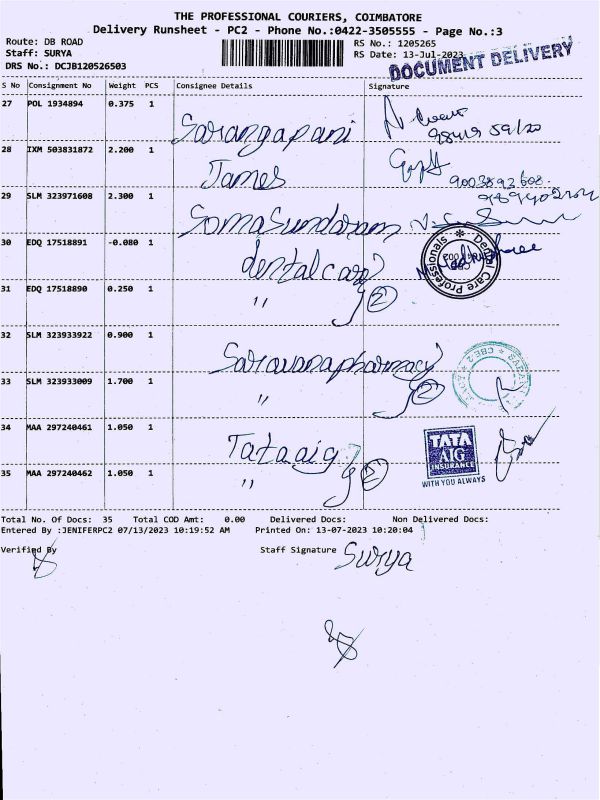 THE PROFESSIONAL COURIERS, COIMBATORE
Delivery Runsheet - PC2 - Phone No.:0422-3505555 - Page No.:3
Route: DB ROAD
Staff: SURYA
DRS No.: DCJB120526503
RS No.: 1205265
RS Date: 13-Jul-2023
DOCUMENT DELIVERY
S No Consignment No Weight PCS Consignee Details Signature
27 POL 1934894 0.375 1 Sarangapani
28 IXM 503831872 2.200 1 James
9003893608
29 SLM 323971608 2.300 1 SomaSundaram
30 EDQ 17518891 -0.080 1 dentalcare
Dental Care Professionals
31 EDQ 17518890 0.250 1 " 2
32 SLM 323933922 0.900 1 Saravanapharmacy
CBE 2
33 SLM 323933009 1.700 1 " 2
34 MAA 297240461 1.050 1 Tataaig
TATA
AIG
INSURANCE
WITH YOU ALWAYS
35 MAA 297240462 1.050 1 " 2
Total No. Of Docs: 35 Total COD Amt: 0.00 Delivered Docs: Non Delivered Docs:
Entered By :JENIFERPC2 07/13/2023 10:19:52 AM Printed On: 13-07-2023 10:20:04
Verified By Staff Signature Surya